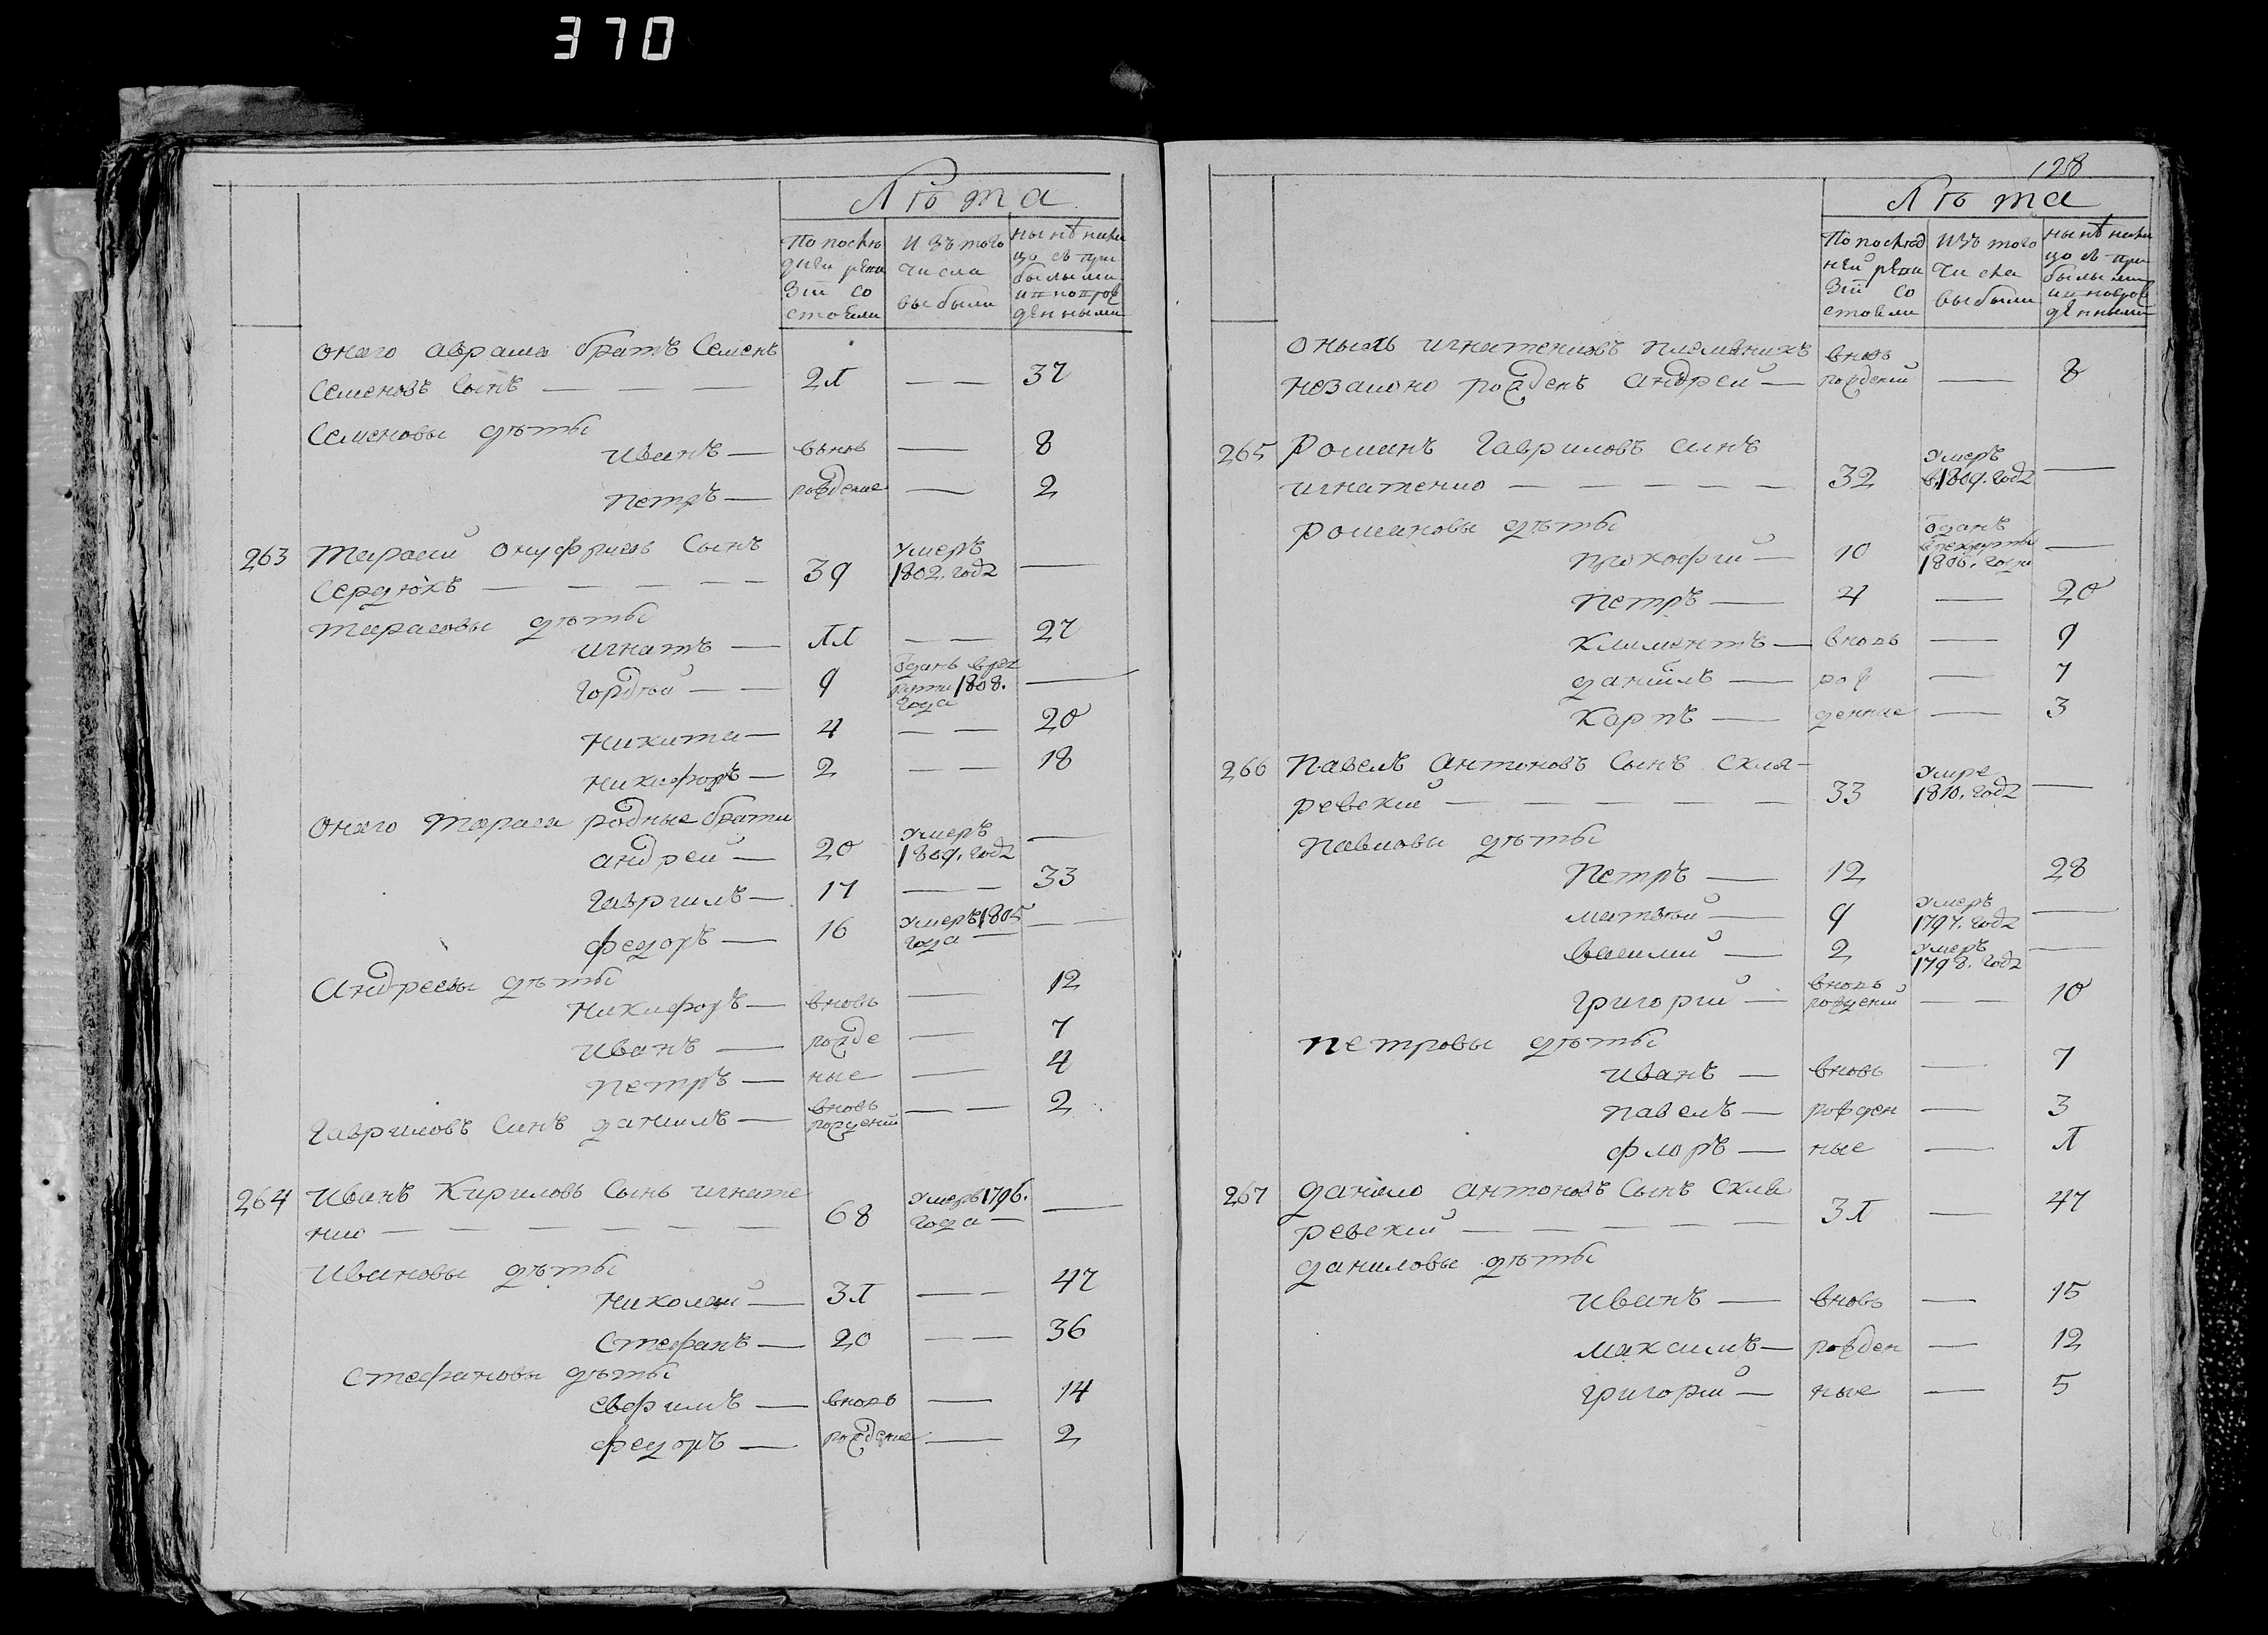 370
Лѣта
По послѣ
дней реви
зіи со
стояли
Изъ того
числа
выбыли
ныне нали
цо съ при
былыми
и новорож
денными
оного аврама братъ Семенъ
Семеновъ Сынъ — — — 21 — — 37
Семеновы дѣты
иванъ — вновь — 8
петръ — рожденые — 2
263 тарасий онуфриевъ Сынъ
Сердюкъ — — — — 39 умеръ 1802. года —
тарасовы дѣты
игнатъ — 11 — — 27
гордѣй — — 9 Оданъ в рек
руты 1808.
года —
никита — 4 — — 20
никифоръ — 2 — — 18
оного тараса родные браты
андрей — 20 умеръ 1809. года —
гаврилъ — 17 — — 33
федоръ — 16 умеръ 1805
года — —
андреевы дѣты
никифоръ — вновь — 12
иванъ — рожде — 7
петръ — ные — 4
гавриловъ Синъ данилъ — вновь рожденій — — 2
264 иванъ Кириловъ Сынъ игнате
нко — — — — — — 68 умеръ 1796.
года — —
ивановы дѣты
николай — 31 — — 47
Стефанъ — 20 — — 36
стефановы дѣты
евфимъ — вновь — 14
федоръ — рожденые — 2
128
Лѣта
По послѣд
ней реви
зіи со
стояли
Изъ того
числа
выбыли
ныне нали
цо съ при
былыми
и новорож
денными
оныхъ игнатенковъ племѣникъ
незаконо рожденъ андрей — вновь рожденій — 8
265 романъ гавриловъ синъ
игнатенко — — — — — 32 умеръ в 1809. года —
романовы дѣты
прокофий — 10 Оданъ в рекруты 1806. года —
петръ — 4 — 20
климентъ — вновь — 9
даніилъ — рож — 7
Карпъ — денные — 3
266 павелъ антоновъ Сынъ Скля-
ревский — — — — — 33 умре 1810. года —
павловы дѣты
петръ — 12 28
матвѣй — 9 умеръ 1797. года —
василий — 2 умеръ 1798. года —
григорий — вновь рожденій — — 10
петровы дѣты
иванъ — вновь — 7
павелъ — рожден — 3
флоръ — ные — 1
267 данило антоновъ Сынъ Скля
ревский — — — — — 31 — 47
даниловы дѣты
иванъ — вновь — 15
максимъ — рожден — 12
григорий — ные — 5